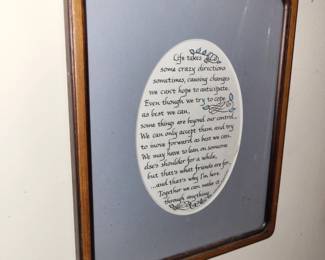 Life takes
some crazy directions
sometimes, causing changes
we can't hope to anticipate.
Even though we try to cope
as best we can,
some things are beyond our control...
We can only accept them and try
to move forward as best we can.
We may have to lean on someone
else's shoulder for a while,
but that's what friends are for...
...and that's why I'm here.
Together we can make it
through anything.